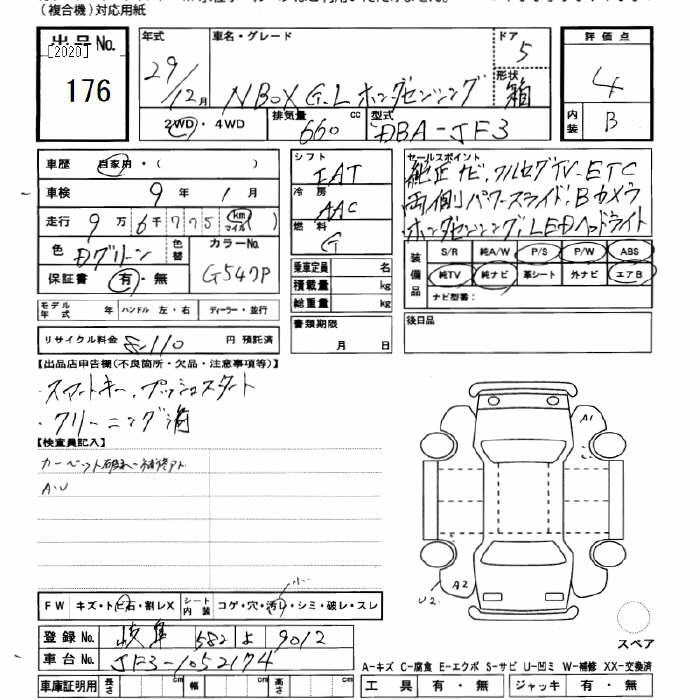 (複合機)対応用紙
出品No.
[2020]
176
年式
29/12月
車名・グレード
NBOX G.L ホンダセンシング
ドア
5
形状
箱
評価点
4
内装
B
2WD・4WD
排気量
660 cc
型式
DBA-JF3
車歴 自家用・( )
車検 9年1月
走行 9万6千775 km マイル )
色 Dグリーン
色替
カラーNo.
G547P
保証書 有・無
モデル年式 年 ハンドル 左・右 ディーラー・並行
リサイクル料金 8,110 円 預託済
シフト
IAT
冷房
AAC
燃料
G
乗車定員 名
積載量 kg
総重量 kg
書類期限
月 日
セールスポイント
純正ナビ、フルセグTV、ETC
両側パワースライド、Bカメラ
ホンダセンシング、LEDヘッドライト
装備品
S/R 純A/W P/S P/W ABS
純TV 純ナビ 革シート 外ナビ エアB
ナビ型番:
後日品
【出品店申告欄(不良箇所・欠品・注意事項等)】
・スマートキー、プッシュスタート
・クリーニング済
【検査員記入】
カーペット破れ、補修アト
A.U
A1
A2
U2
スペア
小
FW キズ・トビ石・割レX シート内装 コゲ・穴・汚レ・シミ・破レ・スレ
登録No. 岐阜 582 よ 9012
車台No. JF3-1052174
車庫証明用 長さ cm 幅 cm 高さ cm
A-キズ C-腐食 E-エクボ S-サビ U-凹ミ W-補修 XX-交換済
工具 有・無 ジャッキ 有・無